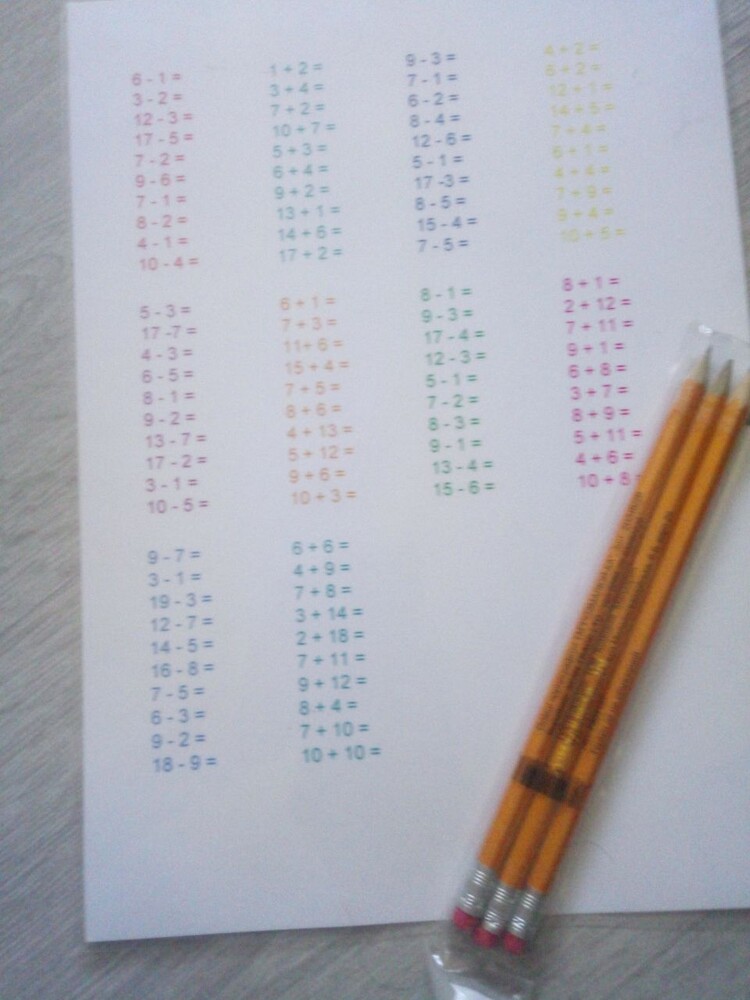 6 - 1 =
3 - 2 =
12 - 3 =
17 - 5 =
7 - 2 =
9 - 6 =
7 - 1 =
8 - 2 =
4 - 1 =
10 - 4 =
1 + 2 =
3 + 4 =
7 + 2 =
10 + 7 =
5 + 3 =
6 + 4 =
9 + 2 =
13 + 1 =
14 + 6 =
17 + 2 =
9 - 3 =
7 - 1 =
6 - 2 =
8 - 4 =
12 - 6 =
5 - 1 =
17 -3 =
8 - 5 =
15 - 4 =
7 - 5 =
4 + 2 =
6 + 2 =
12 + 1 =
14 + 5 =
7 + 4 =
6 + 1 =
4 + 4 =
7 + 9 =
9 + 4 =
10 + 5 =
5 - 3 =
17 -7 =
4 - 3 =
6 - 5 =
8 - 1 =
9 - 2 =
13 - 7 =
17 - 2 =
3 - 1 =
10 - 5 =
6 + 1 =
7 + 3 =
11+ 6 =
15 + 4 =
7 + 5 =
8 + 6 =
4 + 13 =
5 + 12 =
9 + 6 =
10 + 3 =
8 - 1 =
9 - 3 =
17 - 4 =
12 - 3 =
5 - 1 =
7 - 2 =
8 - 3 =
9 - 1 =
13 - 4 =
15 - 6 =
8 + 1 =
2 + 12 =
7 + 11 =
9 + 1 =
6 + 8 =
3 + 7 =
8 + 9 =
5 + 11 =
4 + 6 =
10 + 8 =
9 - 7 =
3 - 1 =
19 - 3 =
12 - 7 =
14 - 5 =
16 - 8 =
7 - 5 =
6 - 3 =
9 - 2 =
18 - 9 =
6 + 6 =
4 + 9 =
7 + 8 =
3 + 14 =
2 + 18 =
7 + 11 =
9 + 12 =
8 + 4 =
7 + 10 =
10 + 10 =